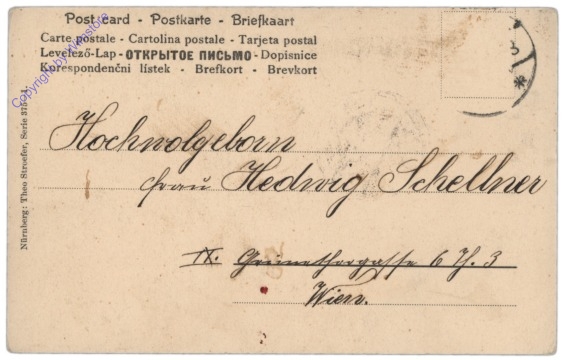 Post card - Postkarte - Briefkaart
Carte postale - Cartolina postale - Tarjeta postal
Levelező-Lap - ОТКРЫТОЕ ПИСЬМО - Dopisnice
Korespondenční lístek - Brefkort - Brevkort
Hochwolgeborn
Frau Hedwig Schellner
IX. Grünethorgasse 6 Th. 3
Wien.
Nürnberg: Theo Stroefer, Serie
Copyright by